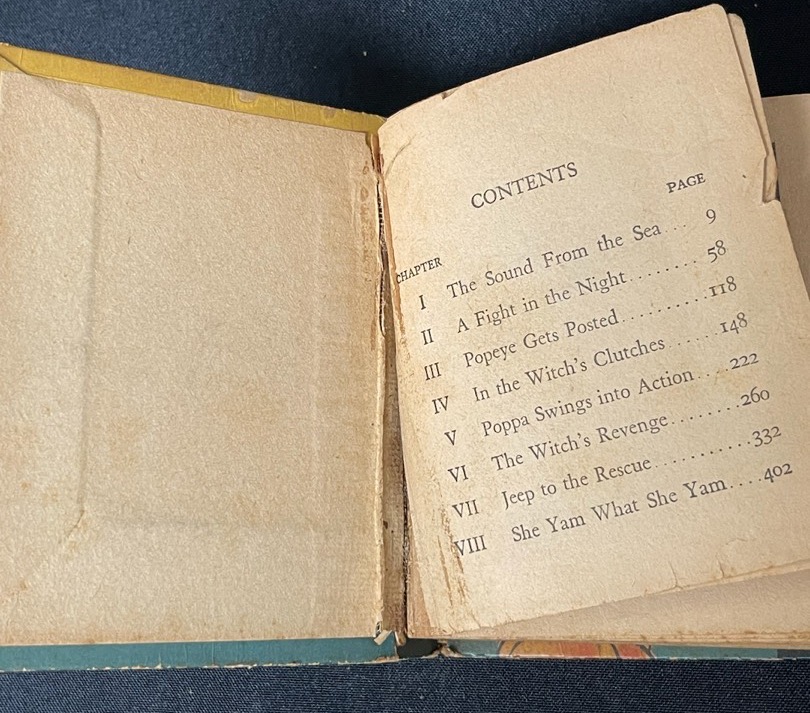 CONTENTS
CHAPTER PAGE
I The Sound From the Sea ... 9
II A Fight in the Night ........ 58
III Popeye Gets Posted .......... 118
IV In the Witch's Clutches ...... 148
V Poppa Swings into Action .... 222
VI The Witch's Revenge ........ 260
VII Jeep to the Rescue ........... 332
VIII She Yam What She Yam .... 402